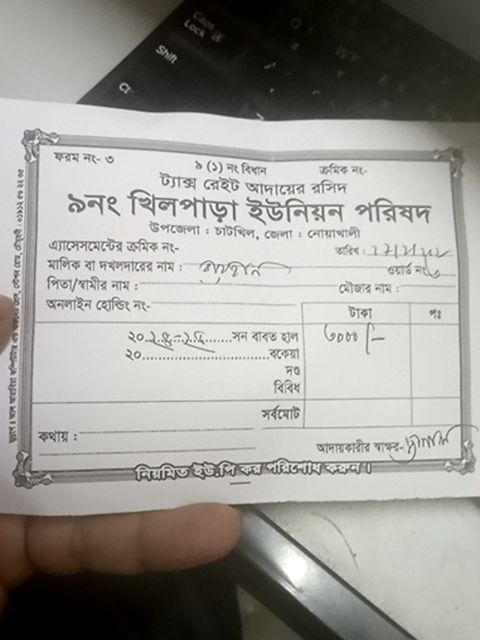 Caps Lock
Shift
ফরম নং- ৩
৯ (১) নং বিধান
ক্রমিক নং-
ট্যাক্স রেইট আদায়ের রসিদ
৯নং খিলপাড়া ইউনিয়ন পরিষদ
উপজেলা : চাটখিল, জেলা : নোয়াখালী
এ্যাসেসমেন্টের ক্রমিক নং-
তারিখ :
মালিক বা দখলদারের নাম :
ওয়ার্ড নং
পিতা/স্বামীর নাম :
মৌজার নাম :
অনলাইন হোল্ডিং নং-
টাকা পঃ
২০২৪-২৫ সন বাবত হাল ৩০০০/-
২০ বকেয়া
দণ্ড
বিবিধ
সর্বমোট
কথায় :
আদায়কারীর স্বাক্ষর-
নিয়মিত ইউ.পি কর পরিশোধ করুন।